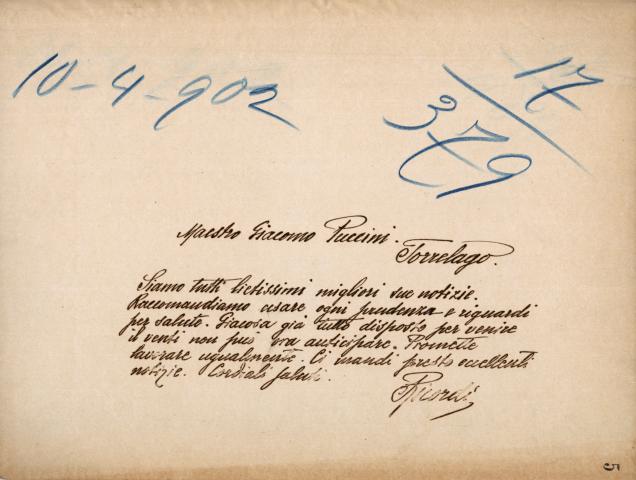 10-4-902
17
379
Maestro Giacomo Puccini.
Torrelago.
Siamo tutti lietissimi migliori sue notizie.
Raccomandiamo usare ogni prudenza e riguardi
per salute. Giacosa già tutto disposto per venire
il venti non può ora anticipare. Promette
lavorare ugualmente. Ci mandi presto eccellenti
notizie. Cordiali saluti.
Ricordi
5